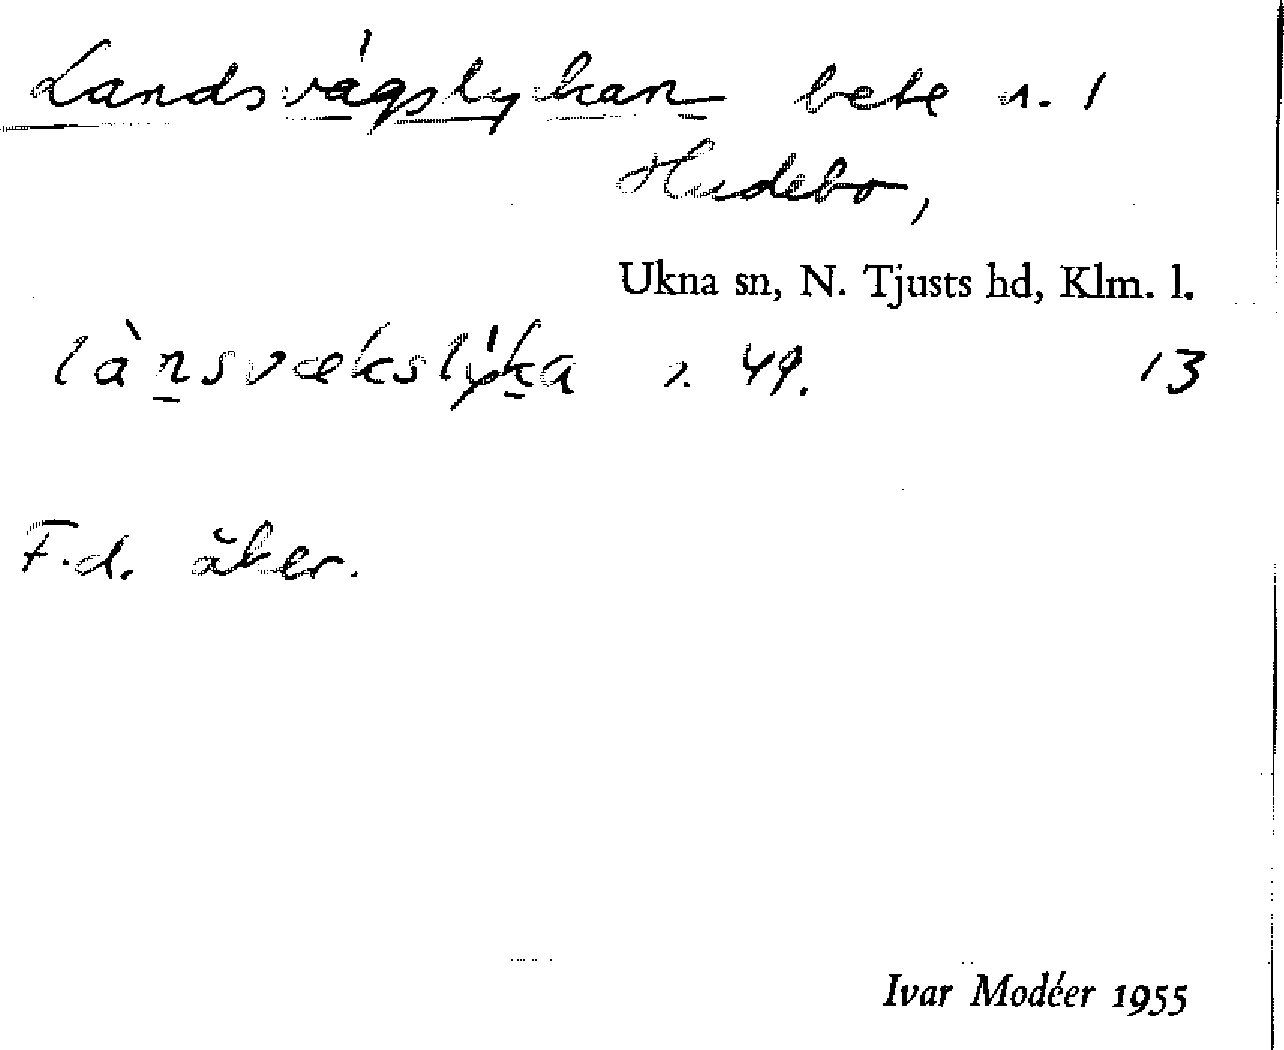 Landsvägslyckan bete n. 1
Hudebo,
Ukna sn, N. Tjusts hd, Klm. l.
lànsvækslýka 49. 13
F.d. åker.
Ivar Modéer 1955